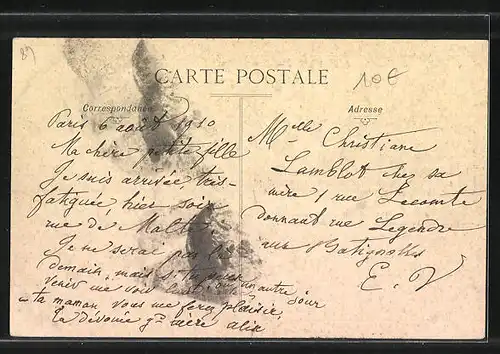 89
CARTE POSTALE
10€
Correspondance
Adresse
Paris 6 août 1910
Ma chère petite fille
Je suis arrivée très-
fatiguée hier soir
rue de Malte.
Je ne serai pas
demain, mais si tu peux
venir me voir un autre jour
ta maman vous me ferez plaisir,
Ta dévouée gd mère alix
Melle Christiane
Lamblot chez sa
mère 1 rue Lecomte
donnant rue Legendre
Batignolles
E. V